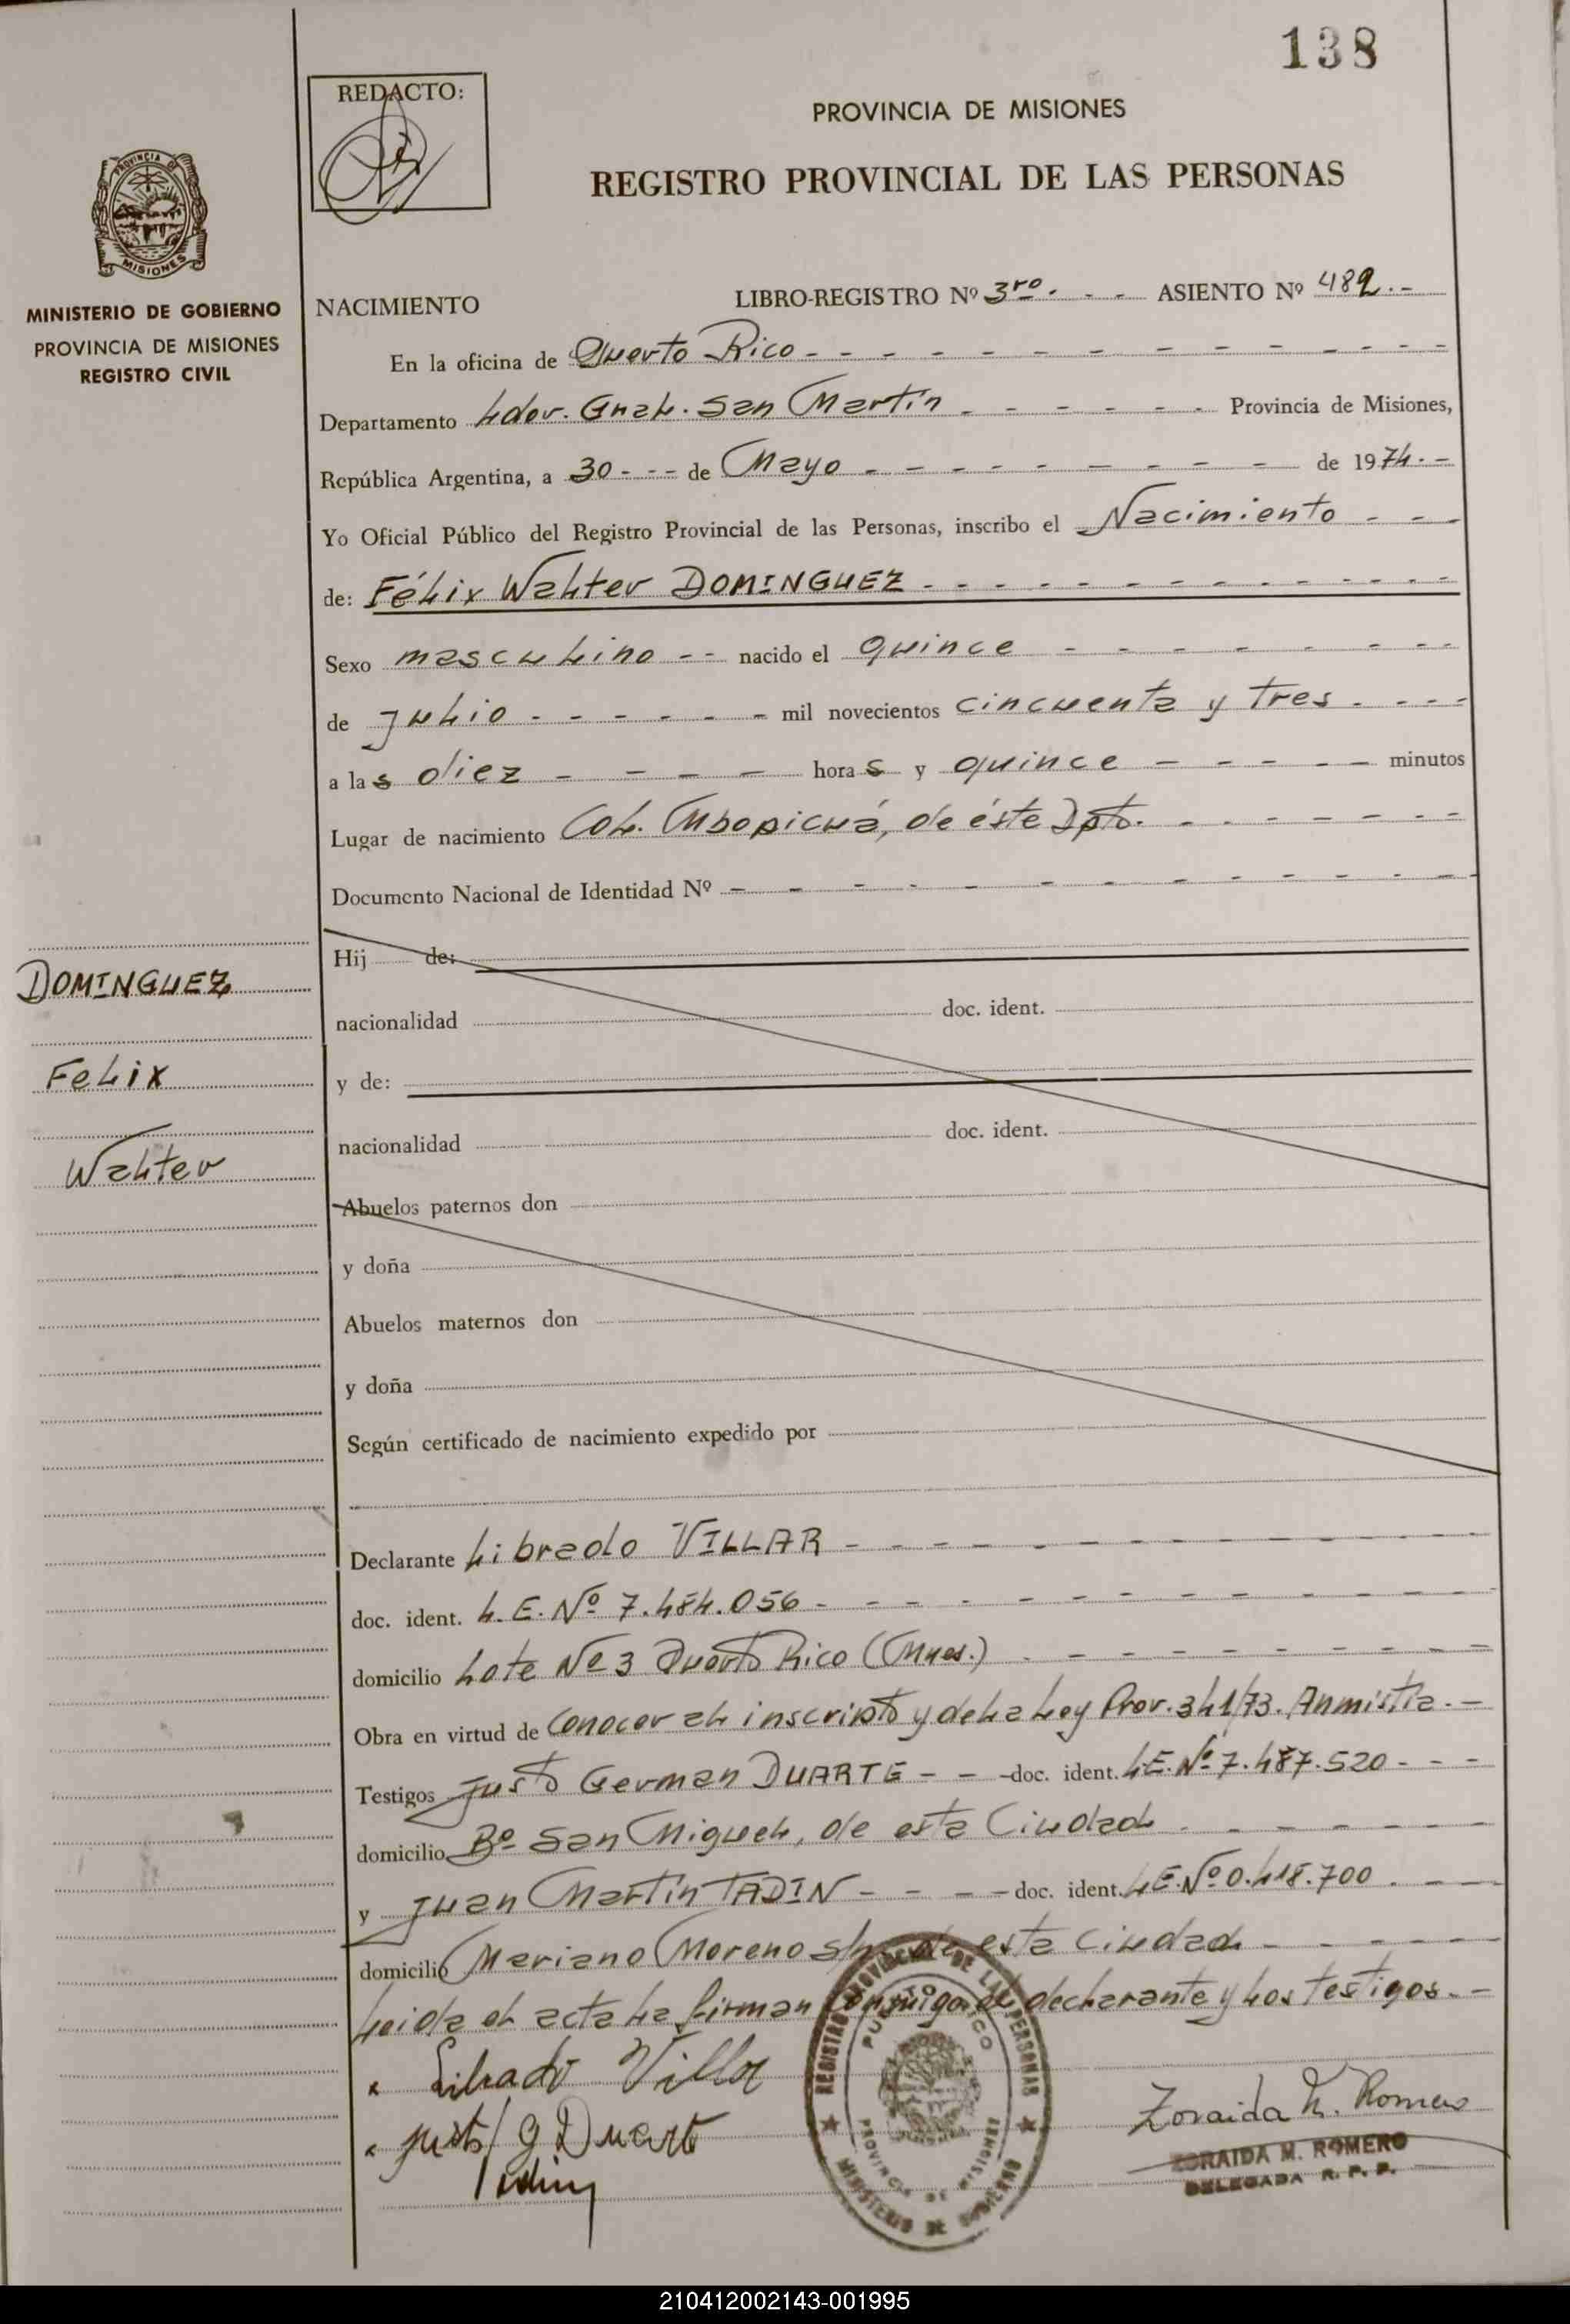 138
REDACTO:
PROVINCIA DE MISIONES
REGISTRO PROVINCIAL DE LAS PERSONAS
PROVINCIA DE
MISIONES
MINISTERIO DE GOBIERNO
PROVINCIA DE MISIONES
REGISTRO CIVIL
NACIMIENTO LIBRO-REGISTRO Nº 3ro. - - - ASIENTO Nº 482.-
En la oficina de Puerto Rico - - - - - - - - - - - -
Departamento Ldor. Gral. San Martín - - - - - - Provincia de Misiones,
República Argentina, a 30 - - - de Mayo - - - - - - - - - de 1974.-
Yo Oficial Público del Registro Provincial de las Personas, inscribo el Nacimiento - - -
de: Félix Walter DOMINGUEZ - - - - - - - - - - - -
Sexo masculino - - nacido el quince - - - - - - - -
de Julio - - - - - - mil novecientos cincuenta y tres - - - -
a las diez - - - - horas y quince - - - - - minutos
Lugar de nacimiento Col. Mbopicuá, de éste Dpto. - - - - - - -
Documento Nacional de Identidad Nº - - - - - - - - - - - -
Hij de:
nacionalidad doc. ident.
y de:
nacionalidad doc. ident.
Abuelos paternos don
y doña
Abuelos maternos don
y doña
Según certificado de nacimiento expedido por
DOMINGUEZ
Felix
Walter
Declarante Librado VILLAR - - - - - - - - - -
doc. ident. L.E. Nº 7.484.056 - - - - - - - - - -
domicilio Lote Nº 3 Puerto Rico (Mnes.) - - - - - - - -
Obra en virtud de Conocer al inscripto y de la Ley Prov. 341/73. Anmistia. -
Testigos Justo German DUARTE - - - doc. ident. L.E. Nº 7.487.520 - - -
domicilio Bº San Miguel, de esta Ciudad - - - - - -
y Juan Martín TADIN - - - - doc. ident. L.E. Nº 0.418.700 - - -
domicilio Mariano Moreno s/n de esta Ciudad - - - - -
Leida el acta la firman conmigo el declarante y los testigos. -
Librado Villar
Justo G Duarte
Tadin
REGISTRO PROVINCIAL DE LAS PERSONAS
PUERTO RICO
PROVINCIA DE MISIONES
MINISTERIO DE GOBIERNO
Zoraida M. Romero
ZORAIDA M. ROMERO
DELEGADA R. P. P.
210412002143-001995